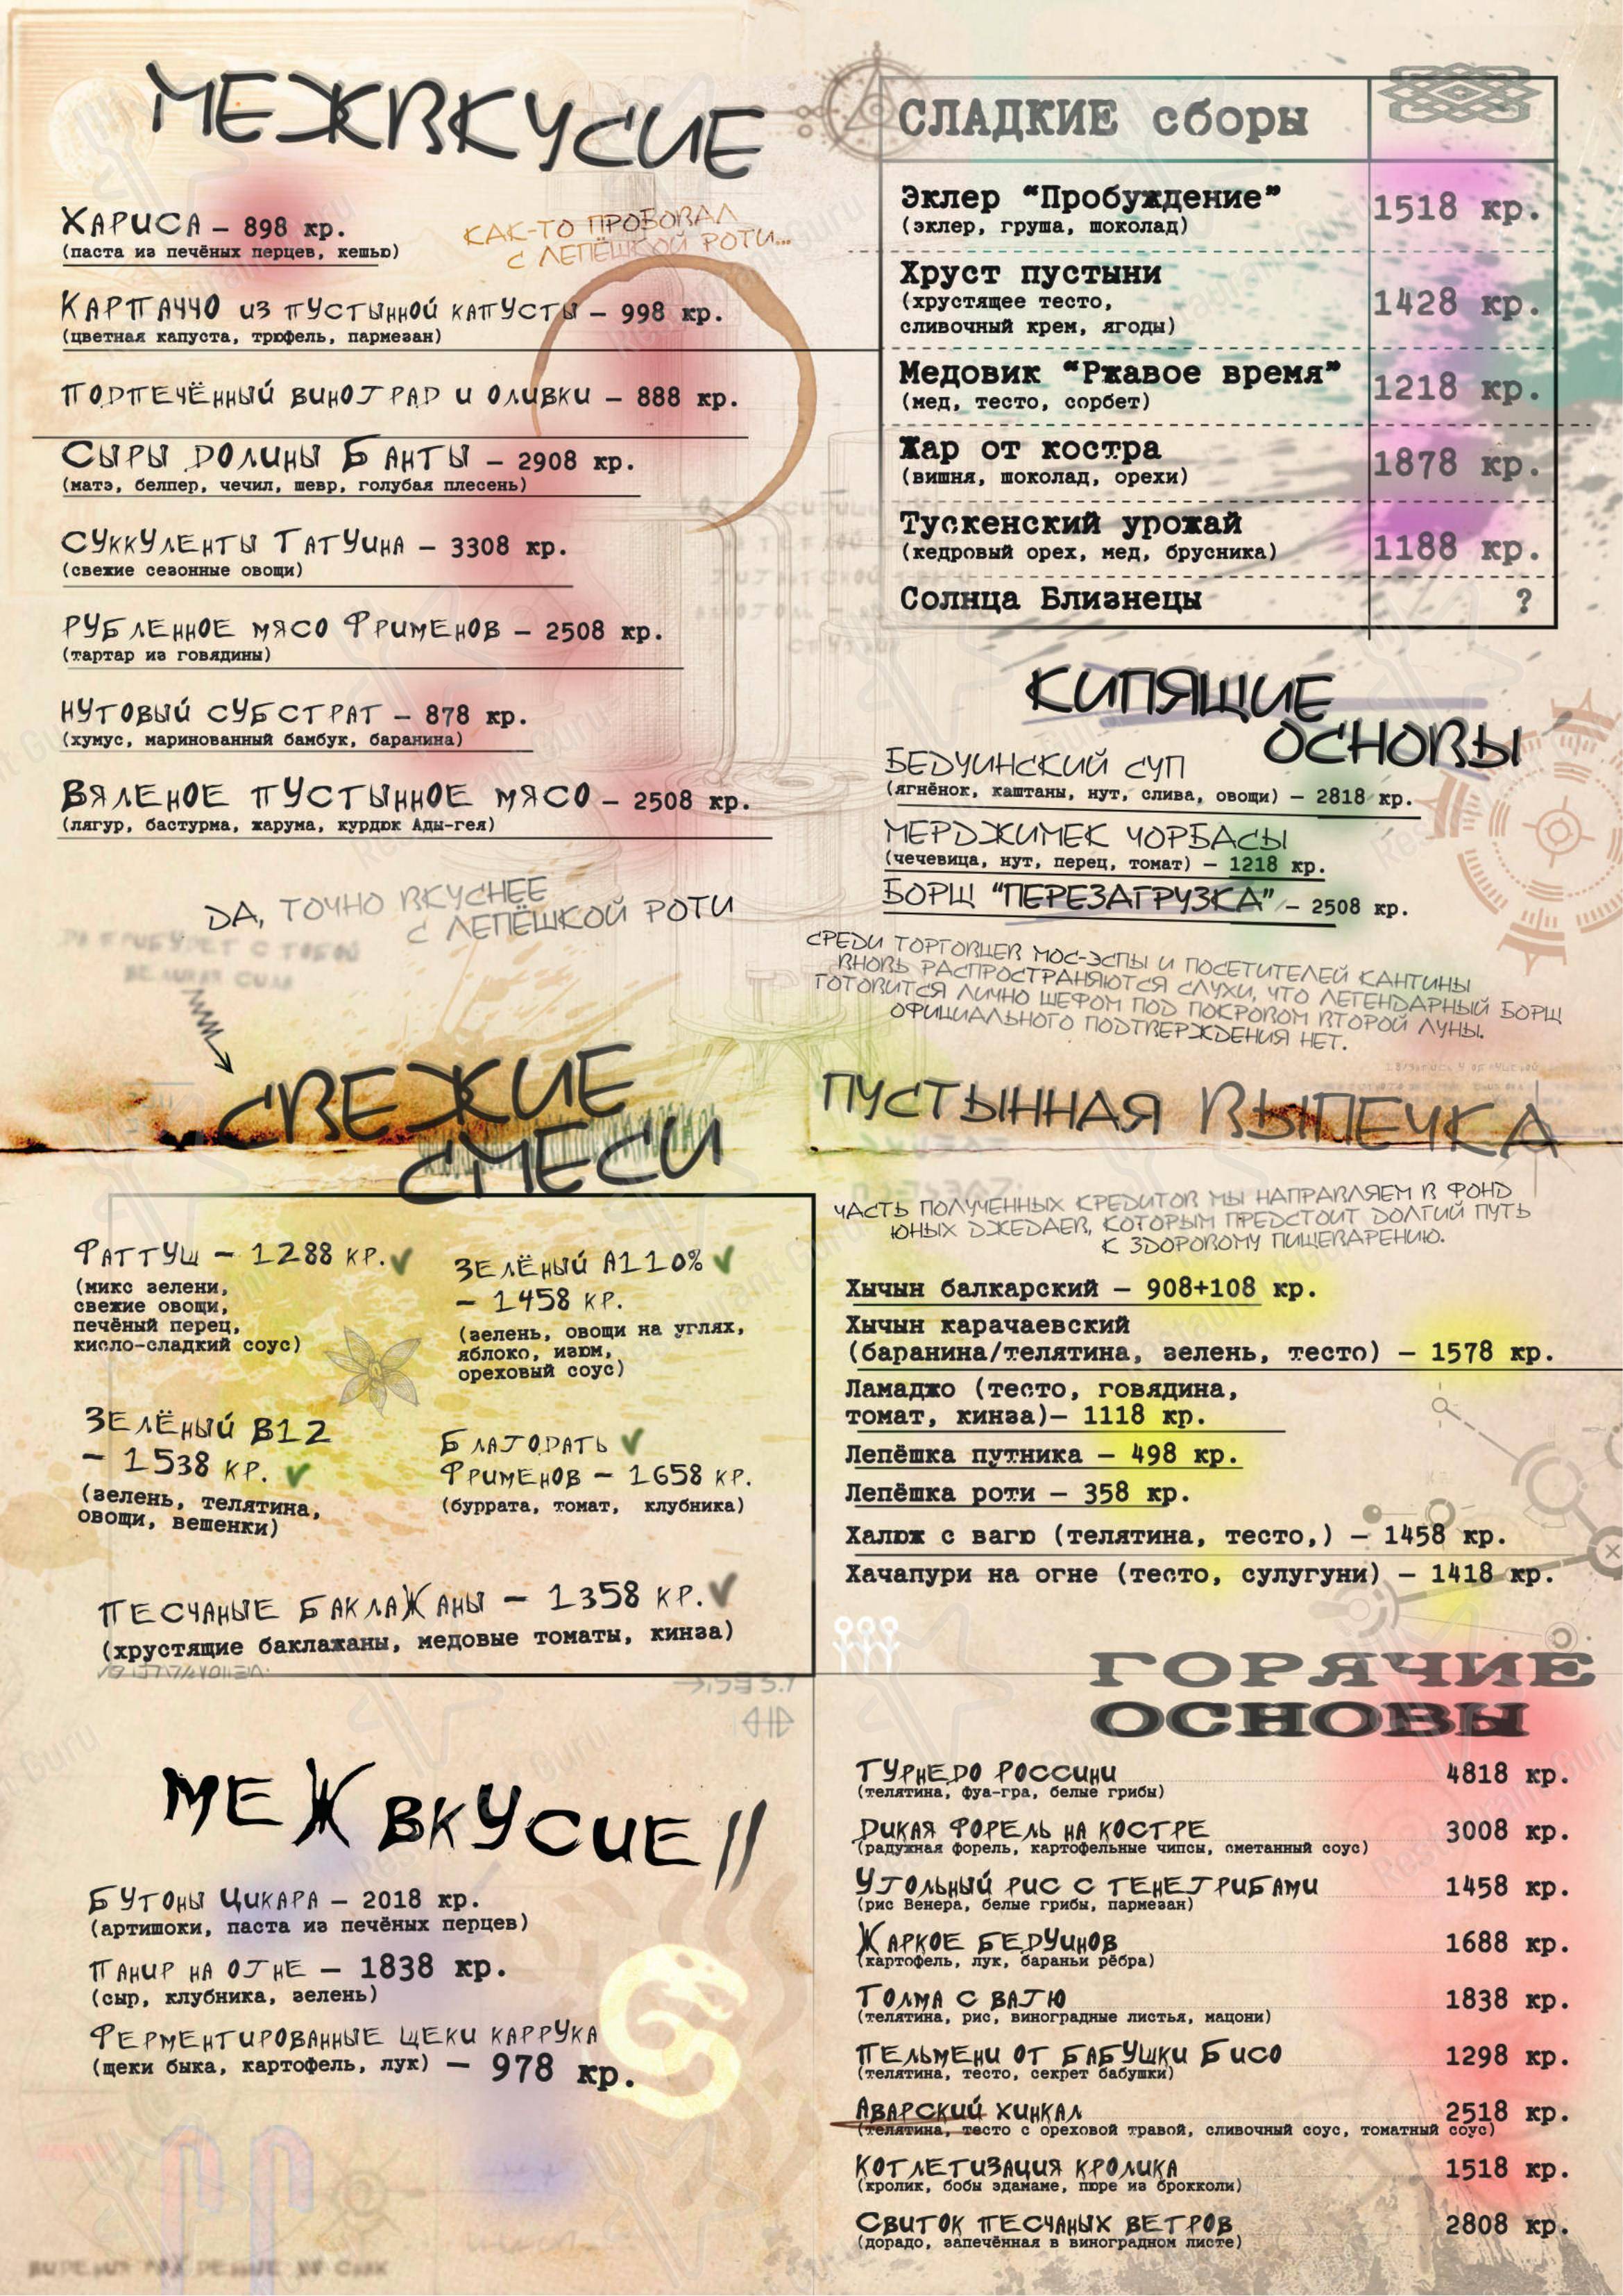 МЕЖВКУСИЕ
ХАРИСА – 898 кр.
(паста из печёных перцев, кешью)
КАК-ТО ПРОБОВАЛ
С ЛЕПЁШКОЙ РОТИ...
КАРПАЧЧО ИЗ ПУСТЫННОЙ КАПУСТЫ – 998 кр.
(цветная капуста, трюфель, пармезан)
ПОДПЕЧЁННЫЙ ВИНОГРАД И ОЛИВКИ – 888 кр.
СЫРЫ ДОЛИНЫ БАНТЫ – 2908 кр.
(матэ, белпер, чечил, шевр, голубая плесень)
СУККУЛЕНТЫ ТАТУИНА – 3308 кр.
(свежие сезонные овощи)
РУБЛЕННОЕ МЯСО ФРИМЕНОВ – 2508 кр.
(тартар из говядины)
НУТОВЫЙ СУБСТРАТ – 878 кр.
(хумус, маринованный бамбук, баранина)
ВЯЛЕНОЕ ПУСТЫННОЕ МЯСО – 2508 кр.
(лягур, бастурма, жарума, курдюк Ады-гея)
ДА, ТОЧНО ВКУСНЕЕ
С ЛЕПЁШКОЙ РОТИ
ДА ПРИБУДЕТ С ТОБОЙ
ВЕЛИКАЯ СИЛА
СЛАДКИЕ сборы
Эклер “Пробуждение” 1518 кр.
(эклер, груша, шоколад)
Хруст пустыни 1428 кр.
(хрустящее тесто,
сливочный крем, ягоды)
Медовик “Ржавое время” 1218 кр.
(мед, тесто, сорбет)
Жар от костра 1878 кр.
(вишня, шоколад, орехи)
Тускенский урожай 1188 кр.
(кедровый орех, мед, брусника)
Солнца Близнецы ?
КИПЯЩИЕ
ОСНОВЫ
БЕДУИНСКИЙ СУП
(ягнёнок, каштаны, нут, слива, овощи) – 2818 кр.
МЕРДЖИМЕК ЧОРБАСЫ
(чечевица, нут, перец, томат) – 1218 кр.
БОРЩ “ПЕРЕЗАГРУЗКА” – 2508 кр.
СРЕДИ ТОРГОВЦЕВ МОС-ЭСПЫ И ПОСЕТИТЕЛЕЙ КАНТИНЫ
ВНОВЬ РАСПРОСТРАНЯЮТСЯ СЛУХИ, ЧТО ЛЕГЕНДАРНЫЙ БОРЩ
ГОТОВИТСЯ ЛИЧНО ШЕФОМ ПОД ПОКРОВОМ ВТОРОЙ ЛУНЫ.
ОФИЦИАЛЬНОГО ПОДТВЕРЖДЕНИЯ НЕТ.
СВЕЖИЕ
СМЕСИ
ФАТТУШ – 1288 КР.
(микс зелени,
свежие овощи,
печёный перец,
кисло-сладкий соус)
ЗЕЛЁНЫЙ А110%
– 1458 КР.
(зелень, овощи на углях,
яблоко, изюм,
ореховый соус)
ЗЕЛЁНЫЙ В12
– 1538 КР.
(зелень, телятина,
овощи, вешенки)
БЛАГОДАТЬ
ФРИМЕНОВ – 1658 КР.
(буррата, томат, клубника)
ПЕСЧАНЫЕ БАКЛАЖАНЫ – 1358 КР.
(хрустящие баклажаны, медовые томаты, кинза)
ПУСТЫННАЯ ВЫПЕЧКА
ЧАСТЬ ПОЛУЧЕННЫХ КРЕДИТОВ МЫ НАПРАВЛЯЕМ В ФОНД
ЮНЫХ ДЖЕДАЕВ, КОТОРЫМ ПРЕДСТОИТ ДОЛГИЙ ПУТЬ
К ЗДОРОВОМУ ПИЩЕВАРЕНИЮ.
Хычын балкарский – 908+108 кр.
Хычын карачаевский
(баранина/телятина, зелень, тесто) – 1578 кр.
Ламаджо (тесто, говядина,
томат, кинза)– 1118 кр.
Лепёшка путника – 498 кр.
Лепёшка роти – 358 кр.
Халюж с вагю (телятина, тесто,) – 1458 кр.
Хачапури на огне (тесто, сулугуни) – 1418 кр.
МЕЖВКУСИЕ //
БУТОНЫ ЦИКАРА – 2018 кр.
(артишоки, паста из печёных перцев)
ПАНИР НА ОГНЕ – 1838 кр.
(сыр, клубника, зелень)
ФЕРМЕНТИРОВАННЫЕ ЩЕКИ КАРРУКА
(щеки быка, картофель, лук) – 978 кр.
ГОРЯЧИЕ
ОСНОВЫ
ТУРНЕДО РОССИНИ 4818 кр.
(телятина, фуа-гра, белые грибы)
ДИКАЯ ФОРЕЛЬ НА КОСТРЕ 3008 кр.
(радужная форель, картофельные чипсы, сметанный соус)
УГОЛЬНЫЙ РИС С ГЕНЕГРИБАМИ 1458 кр.
(рис Венера, белые грибы, пармезан)
ЖАРКОЕ БЕДУИНОВ 1688 кр.
(картофель, лук, бараньи рёбра)
ТОЛМА С ВАГЮ 1838 кр.
(телятина, рис, виноградные листья, мацони)
ПЕЛЬМЕНИ ОТ БАБУШКИ БИСО 1298 кр.
(телятина, тесто, секрет бабушки)
АВАРСКИЙ ХИНКАЛ 2518 кр.
(телятина, тесто с ореховой травой, сливочный соус, томатный соус)
КОТЛЕТИЗАЦИЯ КРОЛИКА 1518 кр.
(кролик, бобы эдамаме, пюре из брокколи)
СВИТОК ПЕСЧАНЫХ ВЕТРОВ 2808 кр.
(дорадо, запечённая в виноградном листе)